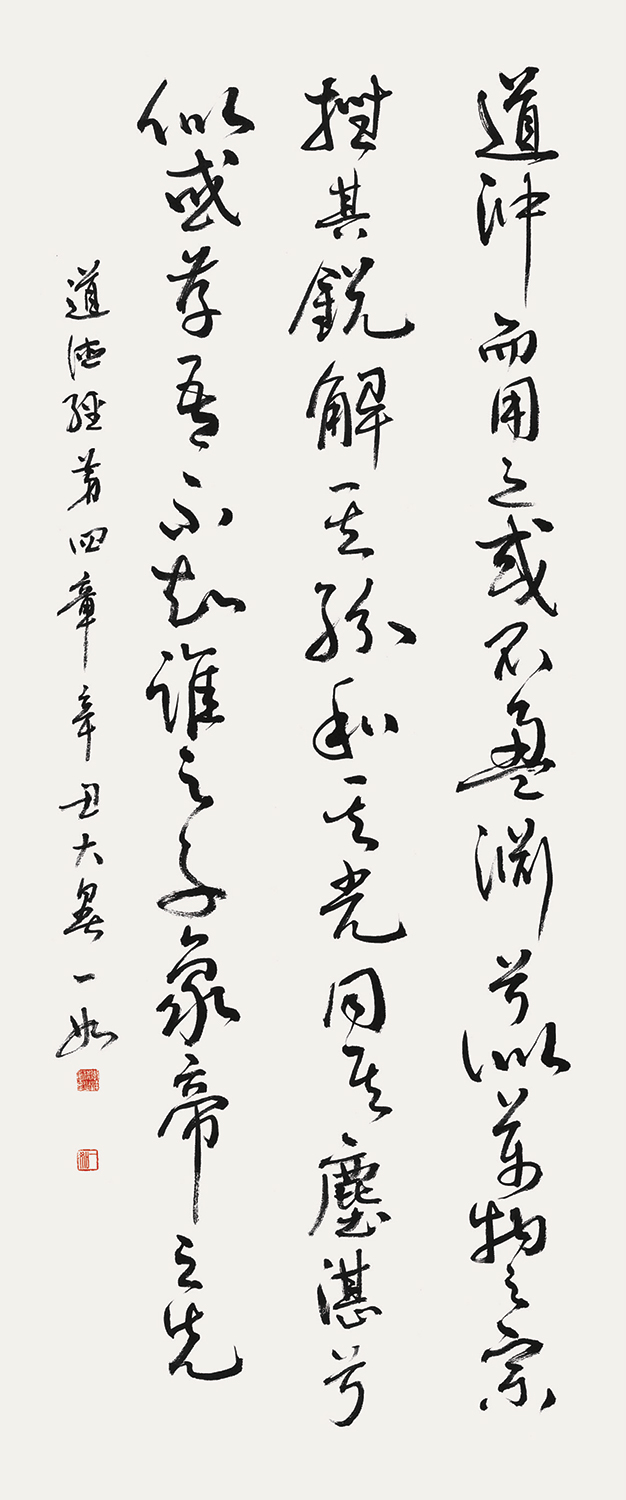 道沖而用之或不盈淵兮似萬物之宗
挫其銳解其紛和其光同其塵湛兮
似或存吾不知誰之子象帝之先
道德經第四章辛丑大暑一如